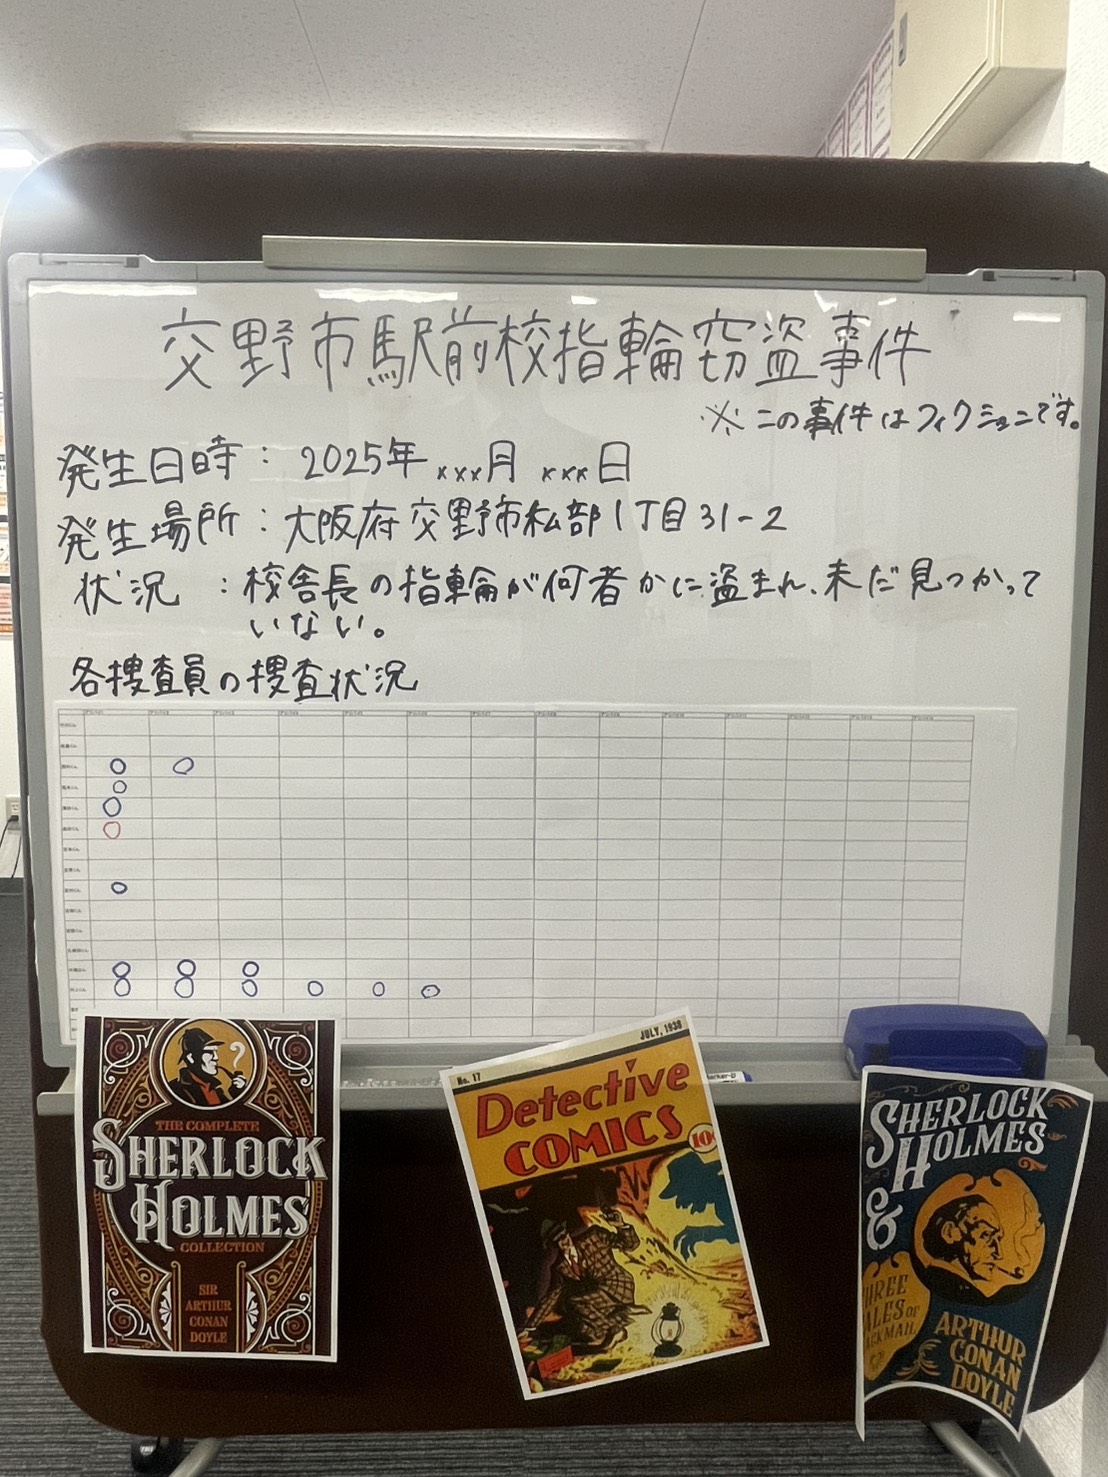 交野市駅前校指輪窃盗事件
※この事件はフィクションです。
発生日時：2025年×××月×××日
発生場所：大阪府交野市私部1丁目31-2
状況：校舎長の指輪が何者かに盗まれ、未だ見つかって
いない。
各捜査員の捜査状況
THE COMPLETE
SHERLOCK
HOLMES
COLLECTION
SIR
ARTHUR
CONAN
DOYLE
JULY, 1938
No. 17
Detective
COMICS
10¢
SHERLOCK
HOLMES
&
THREE
TALES OF
BLACKMAIL
ARTHUR
CONAN
DOYLE